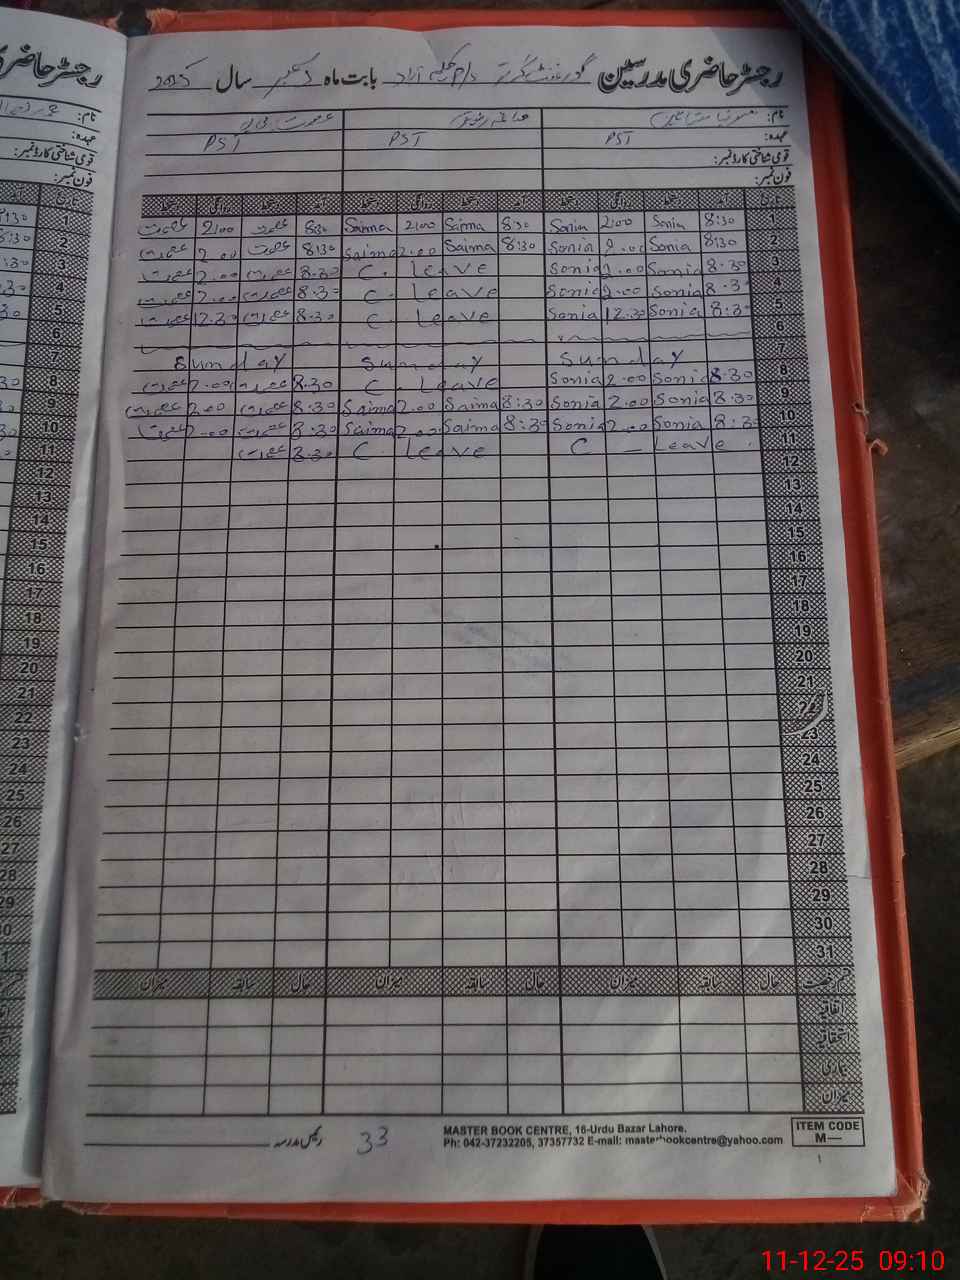 رجسٹر حاضری مدرسین گورنمنٹ گرلز بابت ماہ دسمبر سال 2025
نام: صائمہ عصمت بی بی
عہدہ: PST PST PST
قومی شناختی کارڈ نمبر:
فون نمبر:
تاریخ آمد دستخط روانگی دستخط آمد دستخط روانگی دستخط آمد دستخط روانگی دستخط
1 8:30 Sonia 2:00 Sonia 8:30 Saima 2:00 Saima 8:30 عصمت 2:00 عصمت
2 8:30 Sonia 2.00 Sonia 8:30 Saima 2.00 Saima 8:30 عصمت 2.00 عصمت
3 8.30 Sonia 2.00 Sonia C. Leave 8.30 عصمت 2.00 عصمت
4 8.3 Sonia 2.00 Sonia C. Leave 8.30 عصمت 2.00 عصمت
5 8:30 Sonia 12.30 Sonia C. Leave 8.30 عصمت 12.30 عصمت
6
7 Sunday Sunday Sunday
8 8.30 Sonia 2.00 Sonia C. Leave 8.30 عصمت 2.00 عصمت
9 8.30 Sonia 2.00 Sonia 8:30 Saima 2.00 Saima 8.30 عصمت 2.00 عصمت
10 8:30 Sonia 2.00 Sonia 8:30 Saima 2.00 Saima 8.30 عصمت 2.00 عصمت
11 C – Leave C. Leave 8.30 عصمت
12
13
14
15
16
17
18
19
20
21
22
23
24
25
26
27
28
29
30
31
قسم رخصت حال سابقہ میزان حال سابقہ میزان حال سابقہ میزان
اتفاقیہ
استحقاقیہ
بیماری
میزان
رئیس مدرسہ
33
MASTER BOOK CENTRE, 16-Urdu Bazar Lahore.
Ph: 042-37232205, 37357732 E-mail: masterbookcentre@yahoo.com
ITEM CODE
M—
11-12-25 09:10